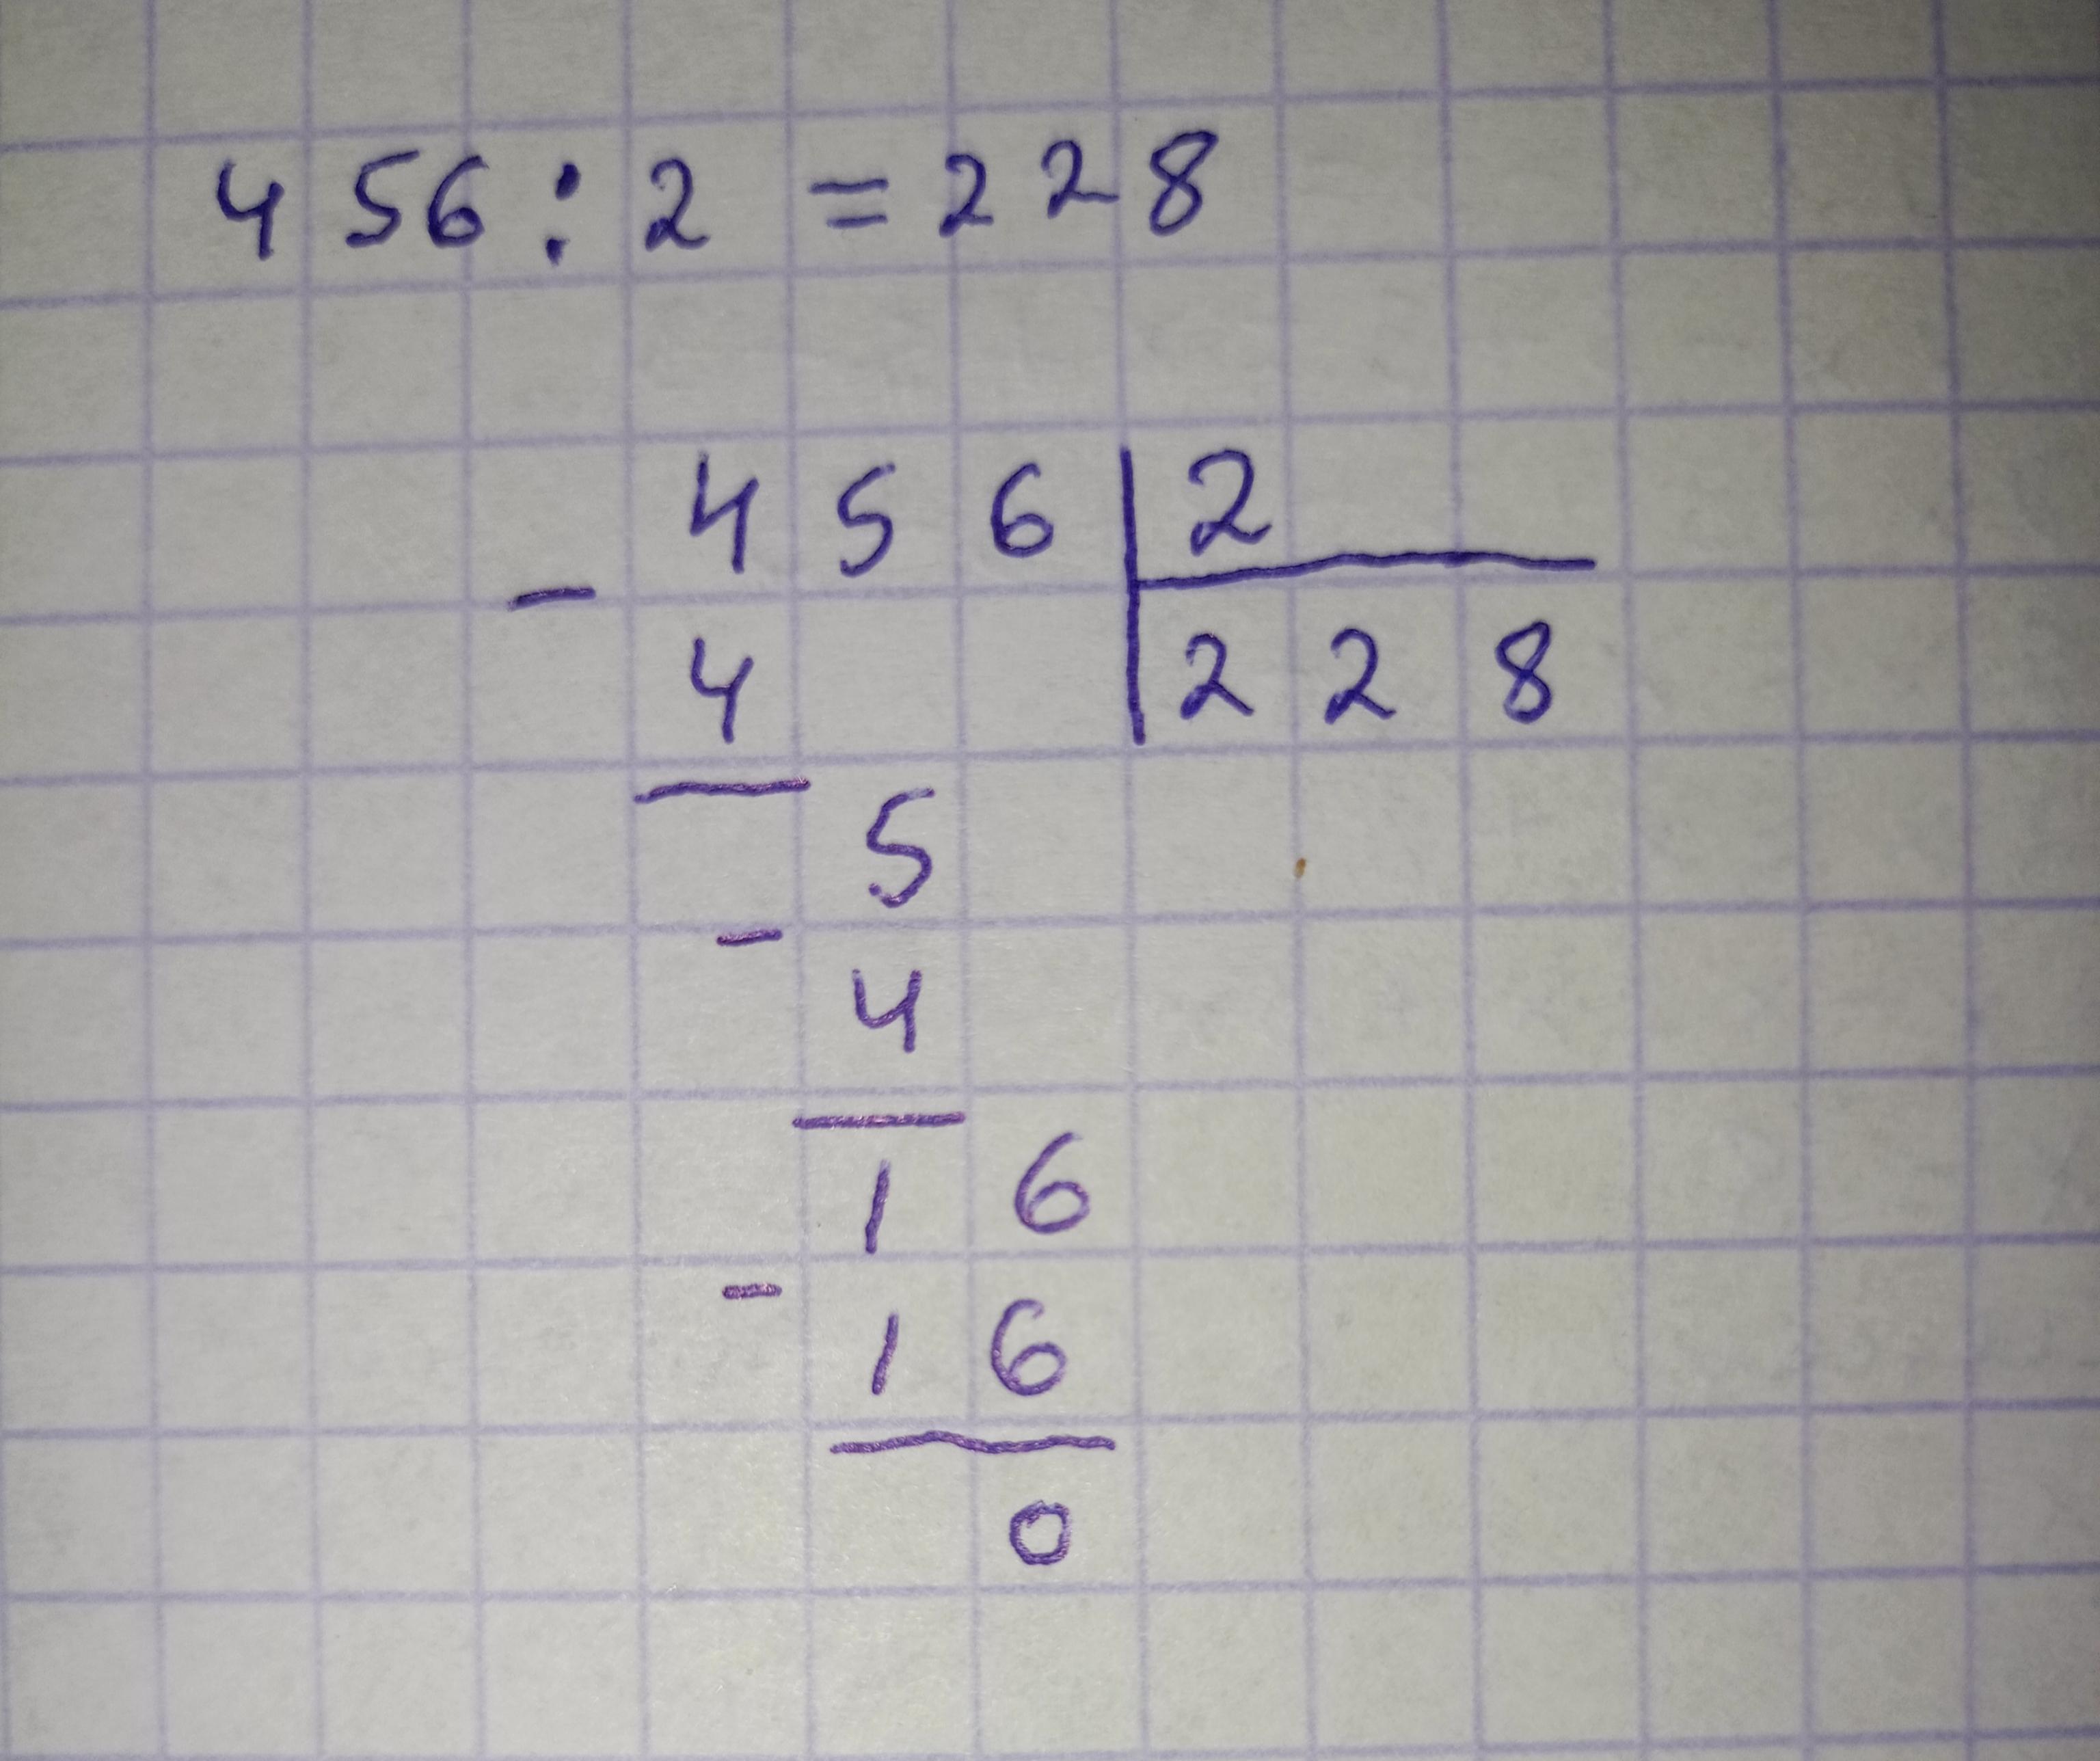 456:2=228
456 2
- 4 228
5
- 4
16
- 16
0